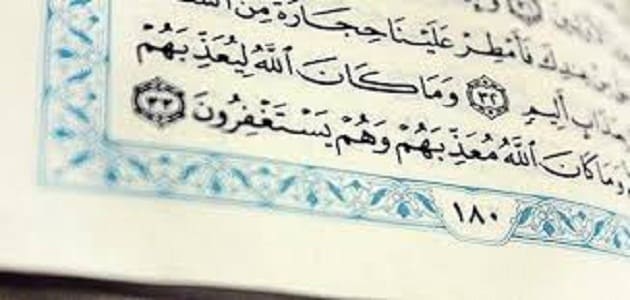 مِنْ عِندِكَ فَأَمْطِرْ عَلَيْنَا حِجَارَةً مِّنَ
بِعَذَابٍ أَلِيمٍ ٣٢ وَمَا كَانَ ٱللَّهُ لِيُعَذِّبَهُمْ
وَمَا كَانَ ٱللَّهُ مُعَذِّبَهُمْ وَهُمْ يَسْتَغْفِرُونَ ٣٣
١٨٠